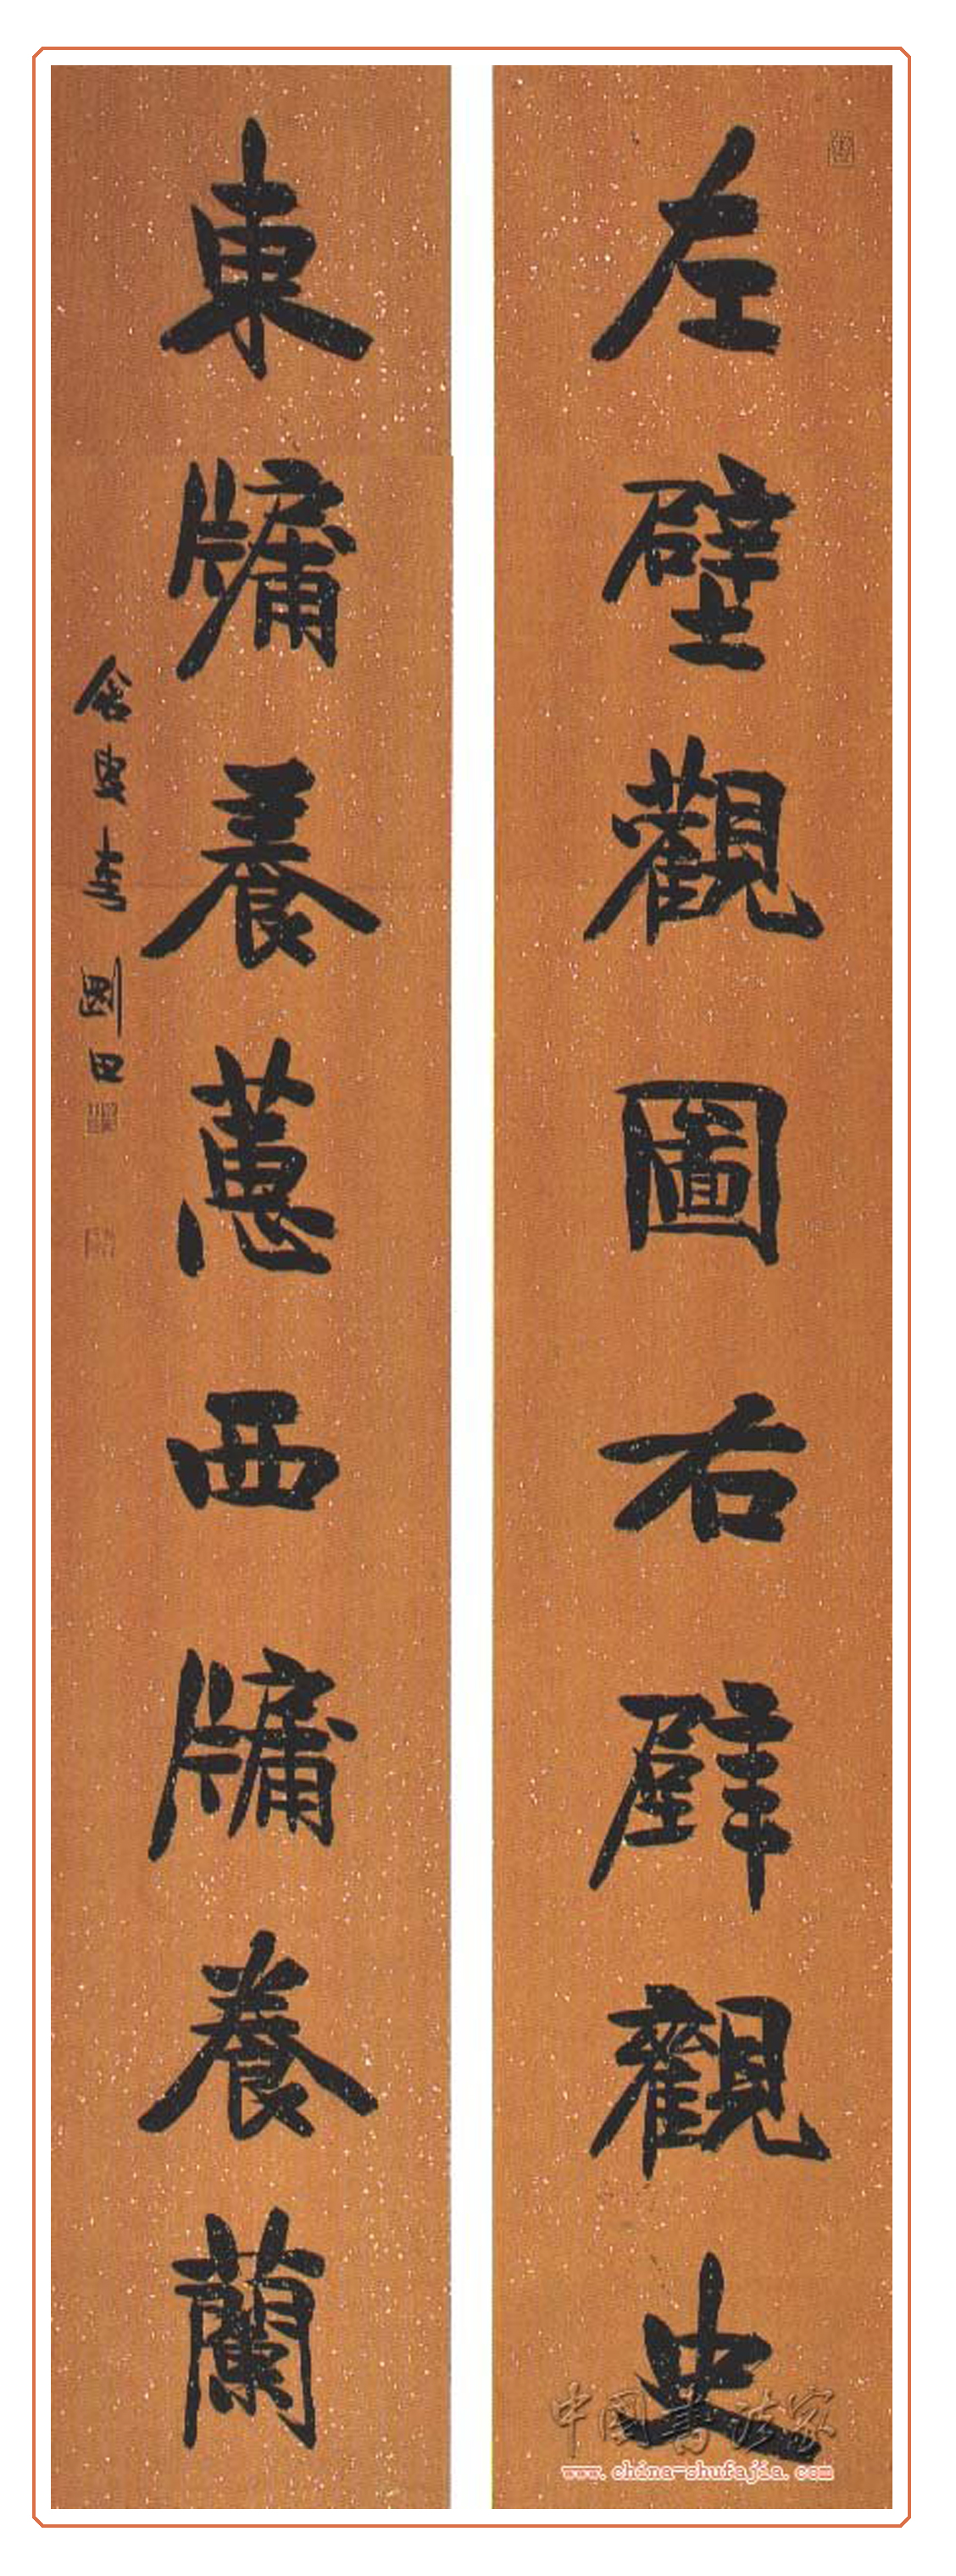 左壁觀圖右壁觀史
東牗養蕙西牗養蘭
中国书法家
www.china-shufajia.com